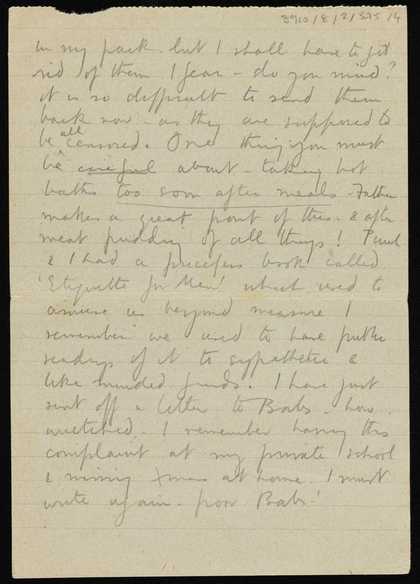 8910/8/2/325/4
in my pack - but I shall have to get
rid of them I fear - do you mind?
it is so difficult to send them
back now - as they are supposed to
be all censored. One thing you must
be careful about - taking hot
baths too soon after meals - Father
makes a great point of this - & after
meat pudding of all things! Paul
& I had a priceless book called
'Etiquette for Men' which used to
amuse us beyond measure I
remember we used to have public
readings of it to sympathetic &
like minded friends. I have just
sent off a letter to Babs - how
wretched - I remember having this
complaint at my private school
& missing Xmas at home. I must
write again - poor Babs!